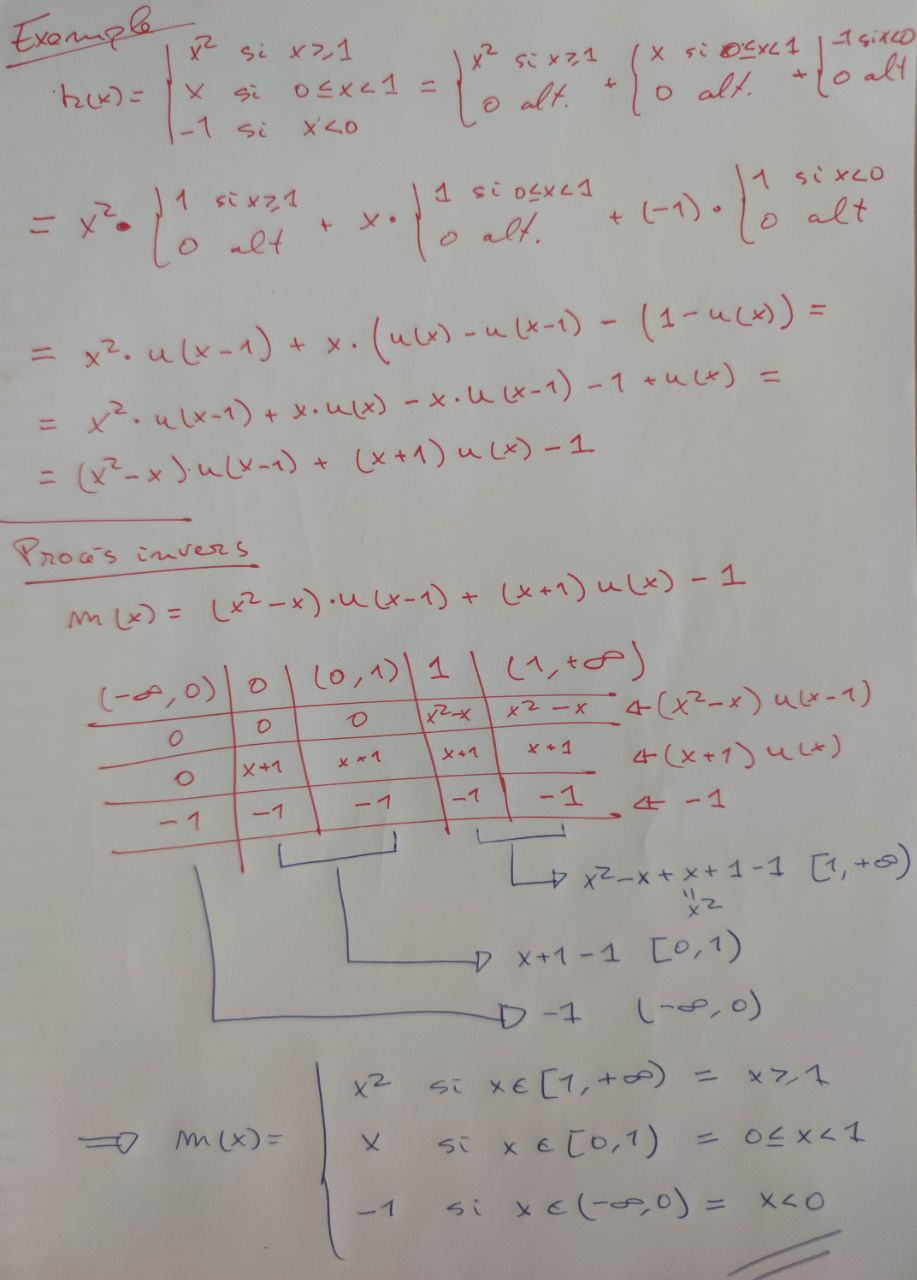 Exemple
h(x) = { x² si x≥1 ; x si 0≤x<1 ; -1 si x<0 } = { x² si x≥1 ; 0 alt. } + { x si 0≤x<1 ; 0 alt. } + { -1 si x<0 ; 0 alt }
= x² • { 1 si x≥1 ; 0 alt } + x • { 1 si 0≤x<1 ; 0 alt. } + (-1) • { 1 si x<0 ; 0 alt }
= x² · u(x-1) + x · (u(x) - u(x-1) - (1-u(x)) =
= x² · u(x-1) + x · u(x) - x · u(x-1) - 1 + u(x) =
= (x²-x) · u(x-1) + (x+1) u(x) - 1
Procés invers
m(x) = (x²-x) · u(x-1) + (x+1) u(x) - 1
(-∞, 0) | 0 | (0, 1) | 1 | (1, +∞)
0 | 0 | 0 | x²-x | x²-x ← (x²-x) u(x-1)
0 | x+1 | x+1 | x+1 | x+1 ← (x+1) u(x)
-1 | -1 | -1 | -1 | -1 ← -1
→ x²-x+x+1-1 [1, +∞)
"
x²
→ x+1-1 [0, 1)
→ -1 (-∞, 0)
⇒ m(x) = { x² si x∈[1, +∞) = x≥1
x si x∈[0, 1) = 0≤x<1
-1 si x∈(-∞, 0) = x<0